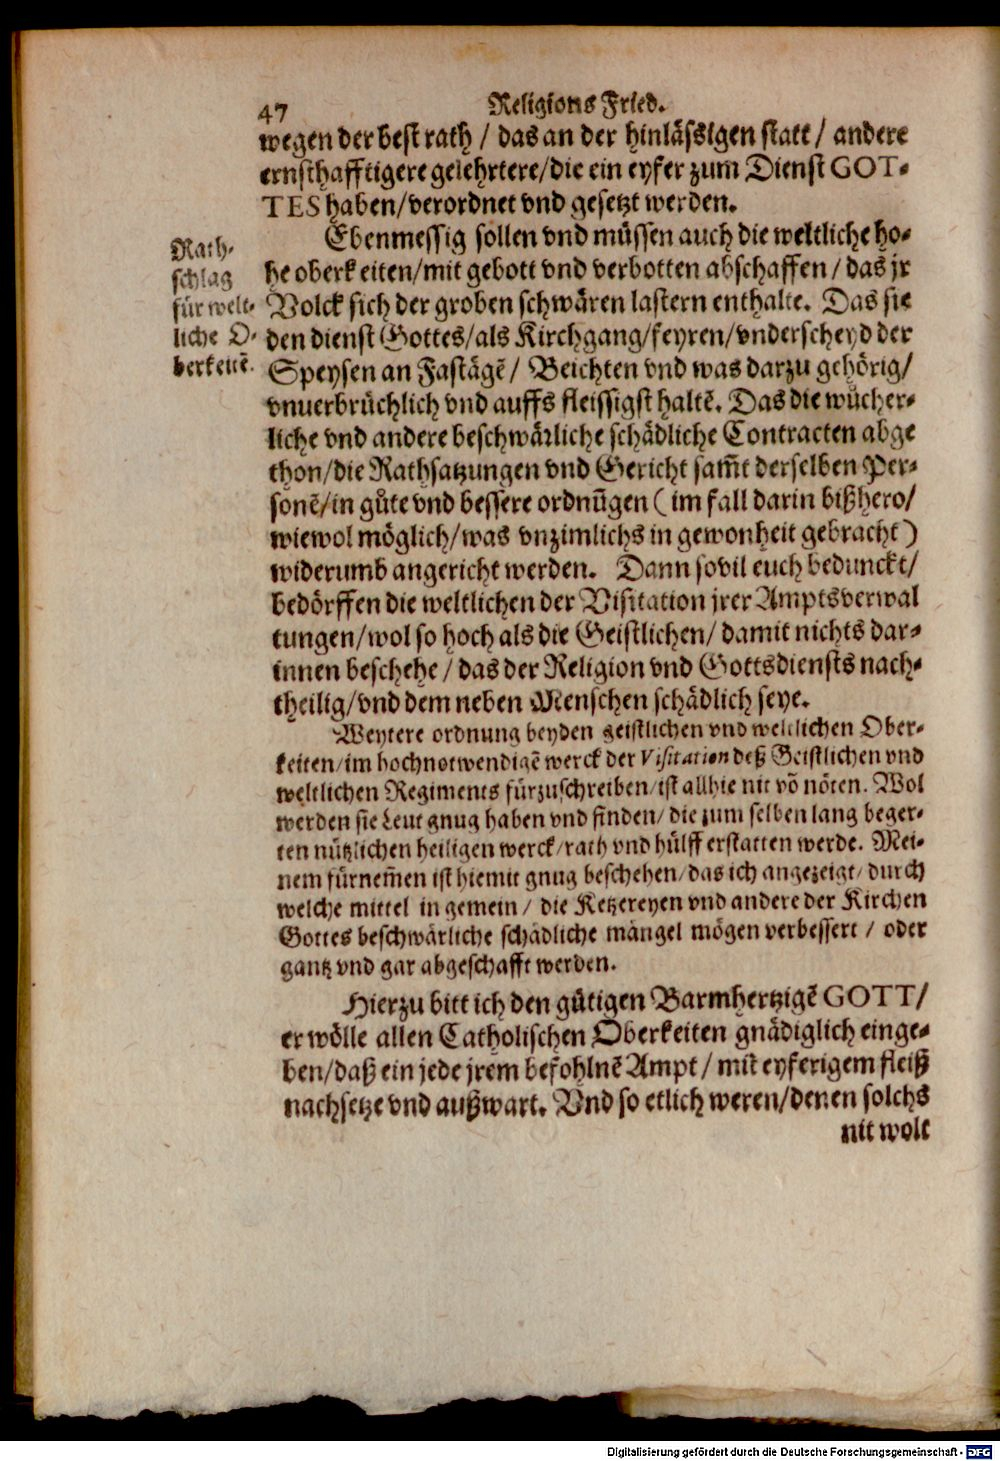 47 Religions Fried.
wegen der best rath / das an der hinlässigen statt / andere
ernsthafftigere gelehrtere/die ein eyfer zum Dienst GOT-
TES haben/verordnet vnd gesetzt werden.
Ebenmessig sollen vnd müssen auch die weltliche ho-
he oberkeiten/mit gebott vnd verbotten abschaffen / das jr
Volck sich der groben schwären lastern enthalte. Das sie
den dienst Gottes/als Kirchgang/feyren/vnderscheyd der
Speysen an Fastägē / Beichten vnd was darzu gehörig/
vnuerbrüchlich vnd auffs fleissigst haltē. Das die wůcher-
liche vnd andere beschwärliche schädliche Contracten abge
thon/die Rathsatzungen vnd Gericht sam̃t derselben Per-
sonē/in gůte vnd bessere ordnūgen ( im fall darin bißhero/
wiewol möglich/was vnzimlichs in gewonheit gebracht )
widerumb angericht werden. Dann sovil euch bedunckt/
bedörffen die weltlichen der Visitation jrer Amptsverwal
tungen/wol so hoch als die Geistlichen/damit nichts dar-
innen beschehe / das der Religion vnd Gottsdiensts nach-
theilig/vnd dem neben Menschen schädlich seye.
Rath-
schlag
für welt-
liche O-
berkeitē.
Weytere ordnung beyden geistlichen vnd weltlichen Ober-
keiten/im hochnotwendigē werck der Visitation deß Geistlichen vnd
weltlichen Regiments fürzuschreiben/ist allhie nit vō nöten. Wol
werden sie Leut gnug haben vnd finden/die zum selben lang beger-
ten nützlichen heiligen werck/rath vnd hülff erstatten werde. Mei-
nem fürnem̃en ist hiemit gnug beschehen/das ich angezeigt/durch
welche mittel in gemein / die Ketzereyen vnd andere der Kirchen
Gottes beschwärliche schädliche mängel mögen verbessert / oder
gantz vnd gar abgeschafft werden.
Hierzu bitt ich den gütigen Barmhertzigē GOTT/
er wölle allen Catholischen Oberkeiten gnädiglich einge-
ben/daß ein jede jrem befohlnē Ampt / mit eyferigem fleiß
nachsetze vnd außwart. Vnd so etlich weren/denen solchs
nit wolt
Digitalisierung gefördert durch die Deutsche Forschungsgemeinschaft - DFG